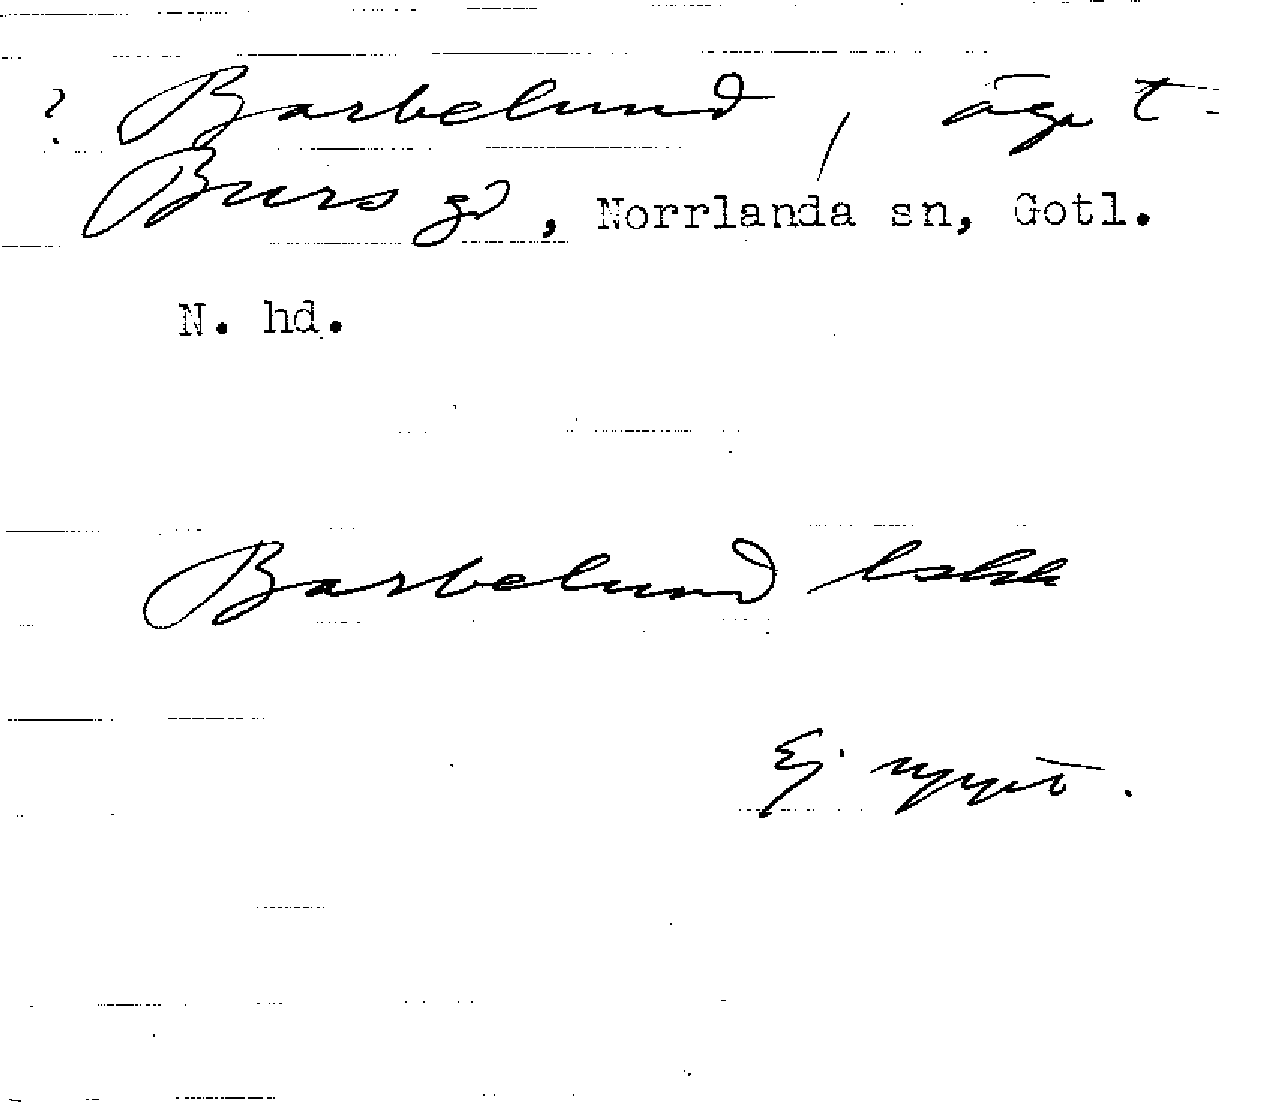 ? Barbelund, äga t.
Burs gd, Norrlanda sn, Gotl.
N. hd.
Barbelund lskk
Ej uppt.